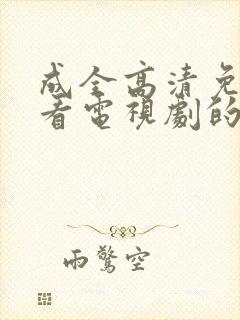 成全高清免
看電視劇的
雨驚空